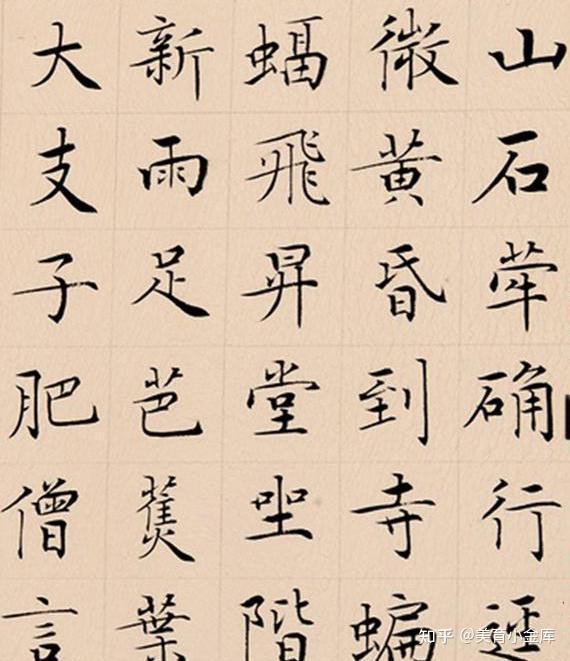 山石荦确行逕
微黄昏到寺蝙
蝠飛昇堂坐階
新雨足芭蕉葉
大支子肥僧言
知乎 @美育小金库